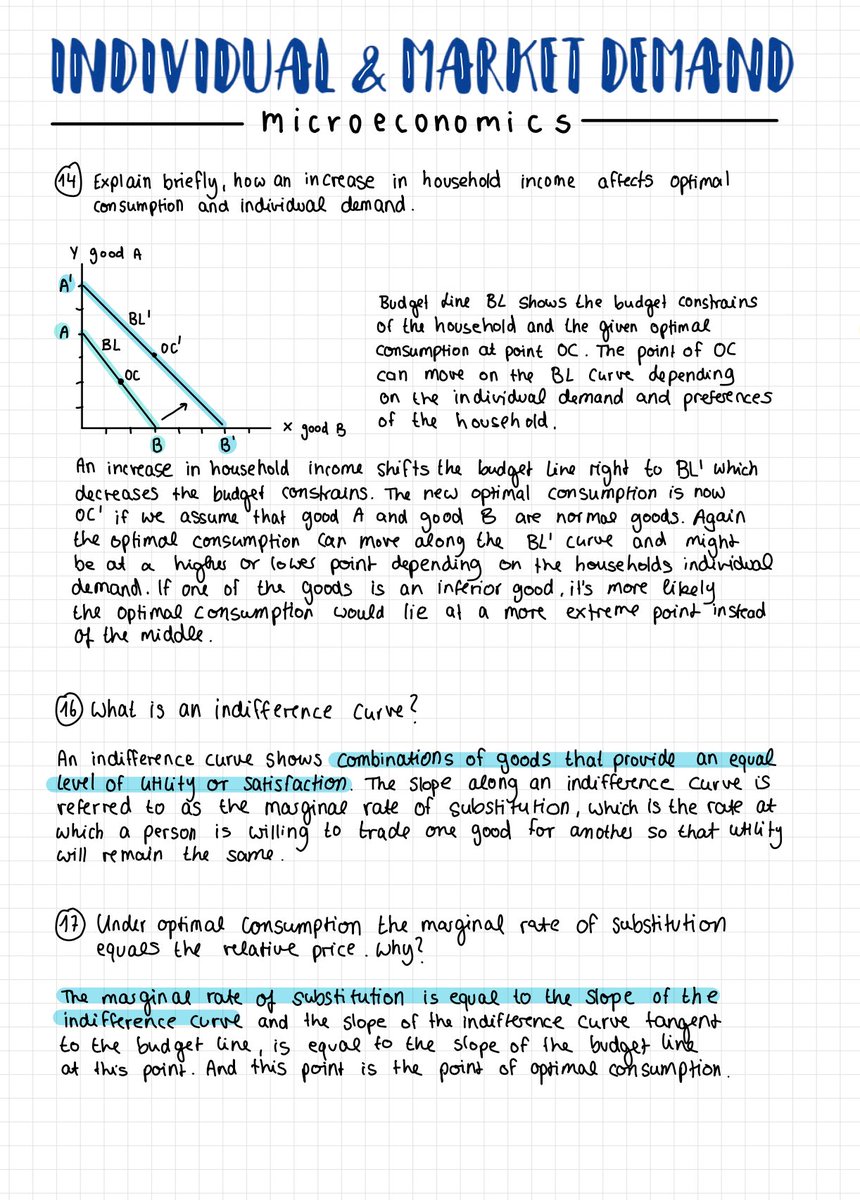 INDIVIDUAL & MARKET DEMAND
microeconomics
14 Explain briefly, how an increase in household income affects optimal
consumption and individual demand.
Y good A
A'
BL'
A
BL
OC'
OC
x good B
B
B'
Budget Line BL shows the budget constrains
of the household and the given optimal
consumption at point OC. The point of OC
can move on the BL curve depending
on the individual demand and preferences
of the household.
An increase in household income shifts the budget line right to BL' which
decreases the budget constrains. The new optimal consumption is now
OC' if we assume that good A and good B are normal goods. Again
the optimal consumption can move along the BL' curve and might
be at a higher or lower point depending on the households individual
demand. If one of the goods is an inferior good, it's more likely
the optimal consumption would lie at a more extreme point instead
of the middle.
16 What is an indifference curve?
An indifference curve shows combinations of goods that provide an equal
level of utility or satisfaction. The slope along an indifference curve is
referred to as the marginal rate of substitution, which is the rate at
which a person is willing to trade one good for another so that utility
will remain the same.
17 Under optimal consumption the marginal rate of substitution
equals the relative price. Why?
The marginal rate of substitution is equal to the slope of the
indifference curve and the slope of the indifference curve tangent
to the budget line, is equal to the slope of the budget line
at this point. And this point is the point of optimal consumption.